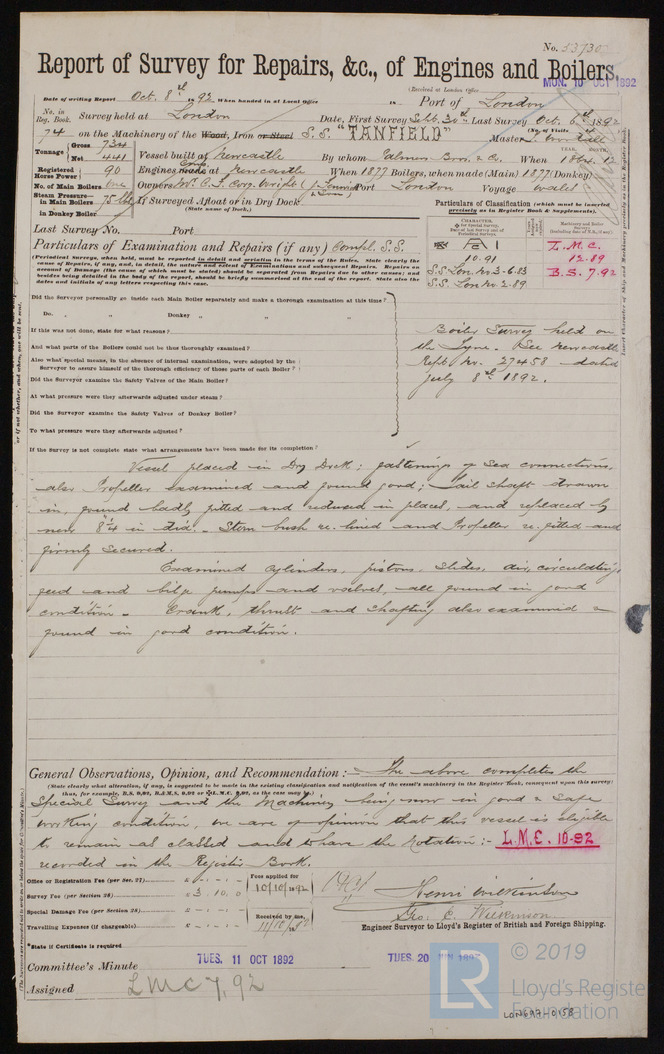 No. 53730
Report of Survey for Repairs, &c., of Engines and Boilers,
(Received at London Office
MON. 10 OCT 1892
Date of writing Report Oct. 8th 1892 When handed in at Local Office 18 Port of London
No. in Reg. Book. Survey held at London Date, First Survey Sept. 30th Last Survey Oct. 6th 1892
74 on the Machinery of the Wood, Iron or Steel S.S. "TANFIELD"
(No. of Visits
Master
Tonnage Gross 734
Net 441
Vessel built at Newcastle By whom Palmer Bros. & Co. When 1864.12
YEAR. MONTH.
Registered Horse Power 90
Engines made at Newcastle When 1877 Boilers, when made (Main) 1877 (Donkey)
No. of Main Boilers One
Owners Port London Voyage Wales
Steam Pressure in Main Boilers 75 lbs
in Donkey Boiler
If Surveyed Afloat or in Dry Dock
(State name of Dock.)
Particulars of Classification (which must be inserted precisely as in Register Book & Supplements).
Last Survey No. Port
Particulars of Examination and Repairs (if any) Compl. S.S.
CHARACTER.
10.91
S.S. Lon. No. 3-6.83
S.S. Lon. No. 2.89
Machinery and Boiler Surveys
L.M.C.
12.89
B.S. 7.92
(Periodical Surveys, when held, must be reported in detail and seriatim in the terms of the Rules. State clearly the cause of Repairs, if any, and, in detail, the nature and extent of Examinations and subsequent Repairs. Repairs on account of Damage (the cause of which must be stated) should be separated from Repairs due to other causes; and besides being detailed in the body of the report, should be briefly summarised at the end of the report. State also the dates and initials of any letters respecting this case.
Did the Surveyor personally go inside each Main Boiler separately and make a thorough examination at this time?
Do. " " Donkey " " "
If this was not done, state for what reasons?
And what parts of the Boilers could not be thus thoroughly examined?
Also what special means, in the absence of internal examination, were adopted by the Surveyor to assure himself of the thorough efficiency of those parts of each Boiler?
Did the Surveyor examine the Safety Valves of the Main Boiler?
At what pressure were they afterwards adjusted under steam?
Did the Surveyor examine the Safety Valves of Donkey Boiler?
To what pressure were they afterwards adjusted?
If the Survey is not complete state what arrangements have been made for its completion?
Boiler Survey held on
the Tyne. See Newcastle
Rept. No. 27458 dated
July 8th 1892.
Vessel placed in Dry Dock: fastenings of Sea connections,
also Propeller examined and found good; Tail shaft drawn
in, found badly pitted and reduced in places, and replaced by
new 8¼ in dia. - Stern bush re-lined and Propeller re-fitted and
firmly secured.
Examined cylinders, pistons, slides, air, circulating,
feed and bilge pumps and valves, all found in good
condition - Crank, thrust and shafting also examined &
found in good condition.
General Observations, Opinion, and Recommendation:- The above completes the
(State clearly what alteration, if any, is suggested to be made in the existing classification and notification of the vessel's machinery in the Register Book, consequent upon this survey:
Special Survey and the Machinery being now in good & safe
working condition, we are of opinion that this vessel is eligible
to remain as classed and to have the Notation:- L.M.C. 10-92
recorded in the Register Book.
Office or Registration Fee (per Sec. 27) £ - . - . -
Survey Fee (per Section 28) £ 3.10.0
Special Damage Fee (per Section 28) £ - . - . -
Travelling Expenses (if chargeable) £ - . - . -
Fees applied for
10/10/1892
Received by me,
Henri Wilkinson
Geo. C. Wilkinson
Engineer Surveyor to Lloyd's Register of British and Foreign Shipping.
*State if Certificate is required
Committee's Minute TUES. 11 OCT 1892
Assigned LMC 7,92
LR
© 2019
Lloyd's Register
Foundation
LON697-0158